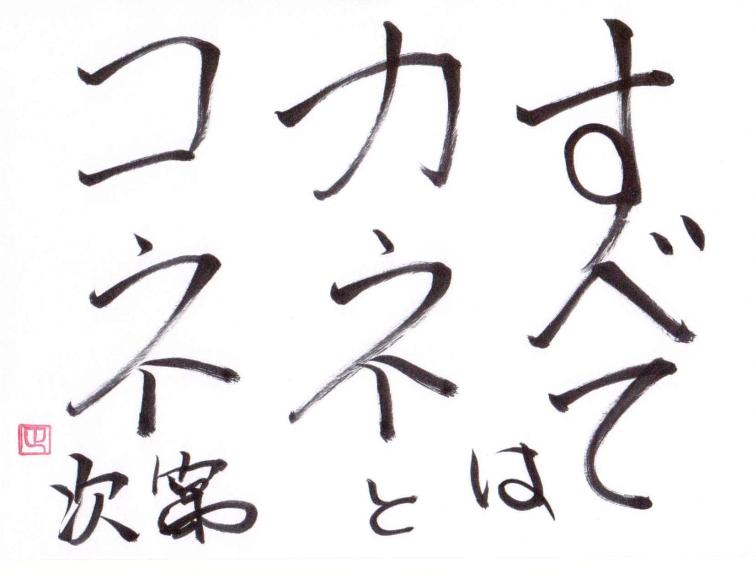 すべては
カネと
コネ次第